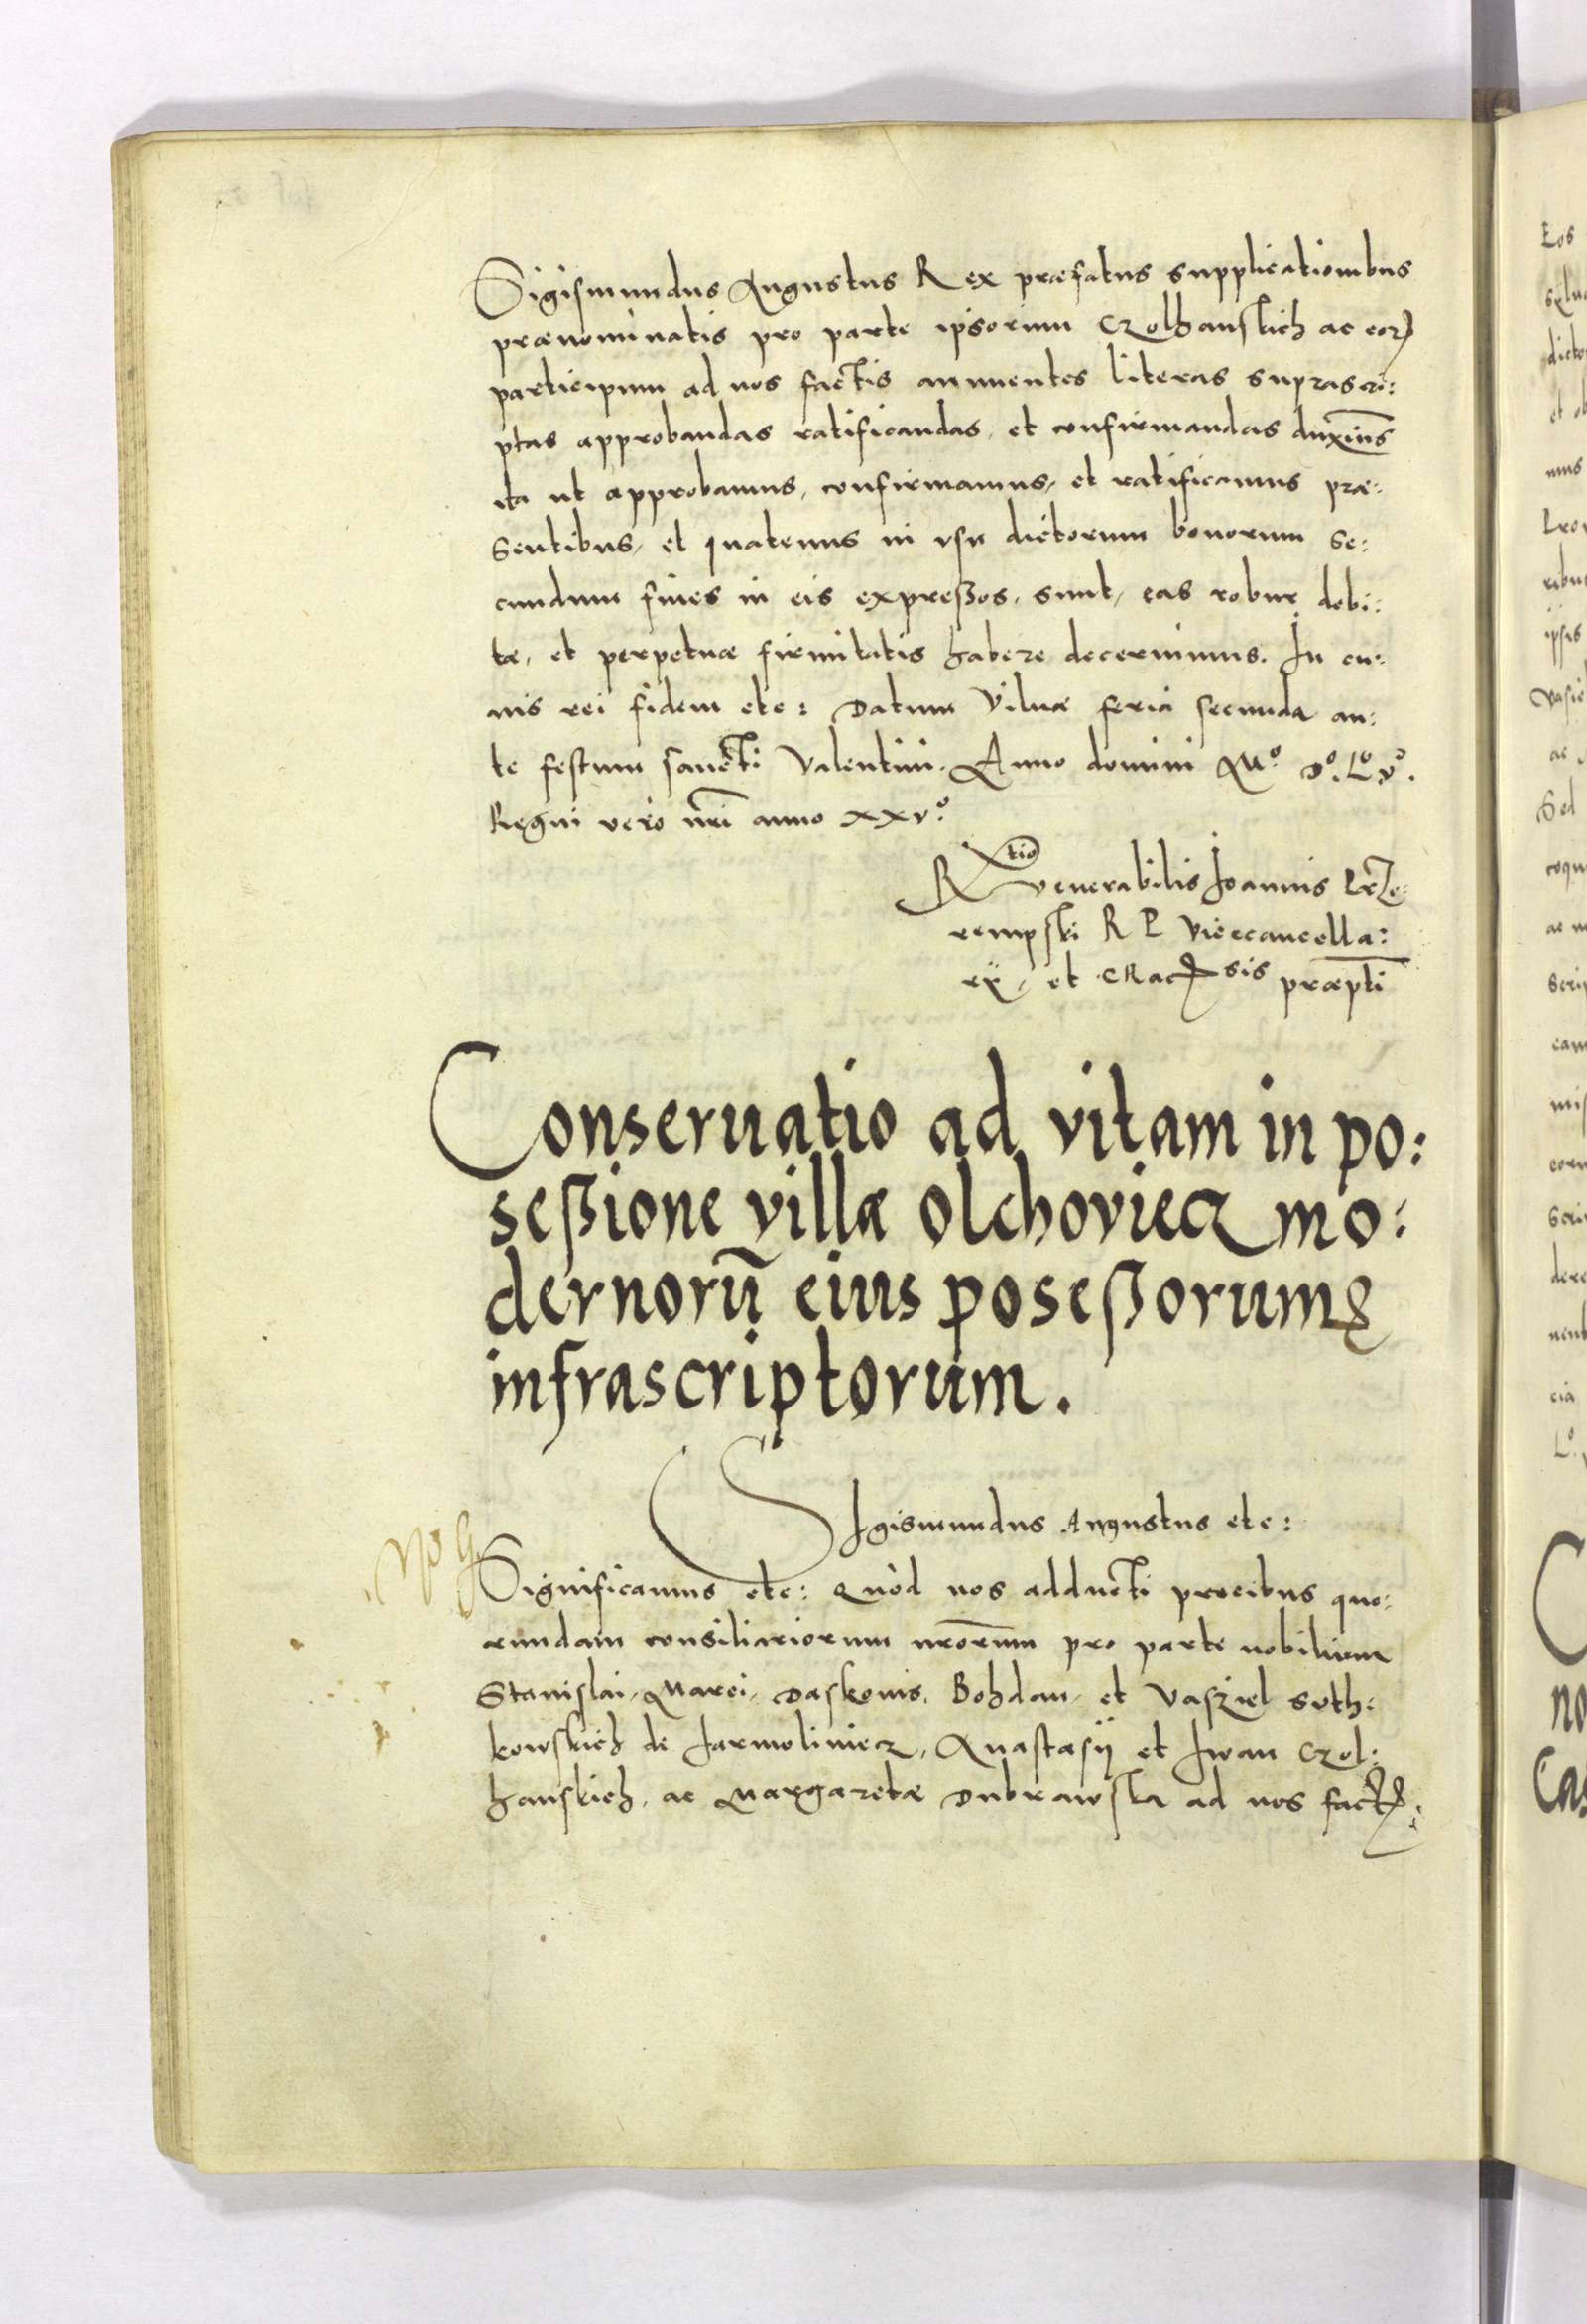 Sigismundus Augustus Rex præfatus supplicationibus
prænominatis pro parte ipsorum Czolhanskich ac eorꝝ
participum ad nos factis annuentes literas suprascri:
ptas approbandas ratificandas, et confirmandas duxim̃s
ita ut approbamus, confirmamus, et ratificamus præ:
sentibus, et quatenus in vsu dictorum bonorum se:
cundum fines in eis expreßos, sunt, eas robur debi:
tæ, et perpetuæ firmitatis habere decernimus. In cu:
ius rei fidem etc: Datum Vilnæ feria secunda an:
te festum sancti Valentini. Anno domini Mº Dº. Lº. Vº.
Regni vero nr̃i anno xxvº.
Rtio venerabilis Joannis Prze:
rempski R P Vicecancella:
rÿ, et Cracꝭsis præp̃ti
Conseruatio ad vitam in po:
seßione villæ Olchoviecz mo:
dernorũ eius poseßorumqꝫ
infrascriptorum.
SIgismundus Augustus etc:
Significamus etc: Quòd nos adducti precibus quo:
rundam consiliariorum nr̃orum pro parte nobilium
Stanislai, Marci, Daskonis, Bohdan, et Vasziel Suth:
kowskich de Jarmoliniecz, Anastasÿ et Iwan Czol:
hanskich, ac Margaretæ Dubrawska ad nos factꝭ: